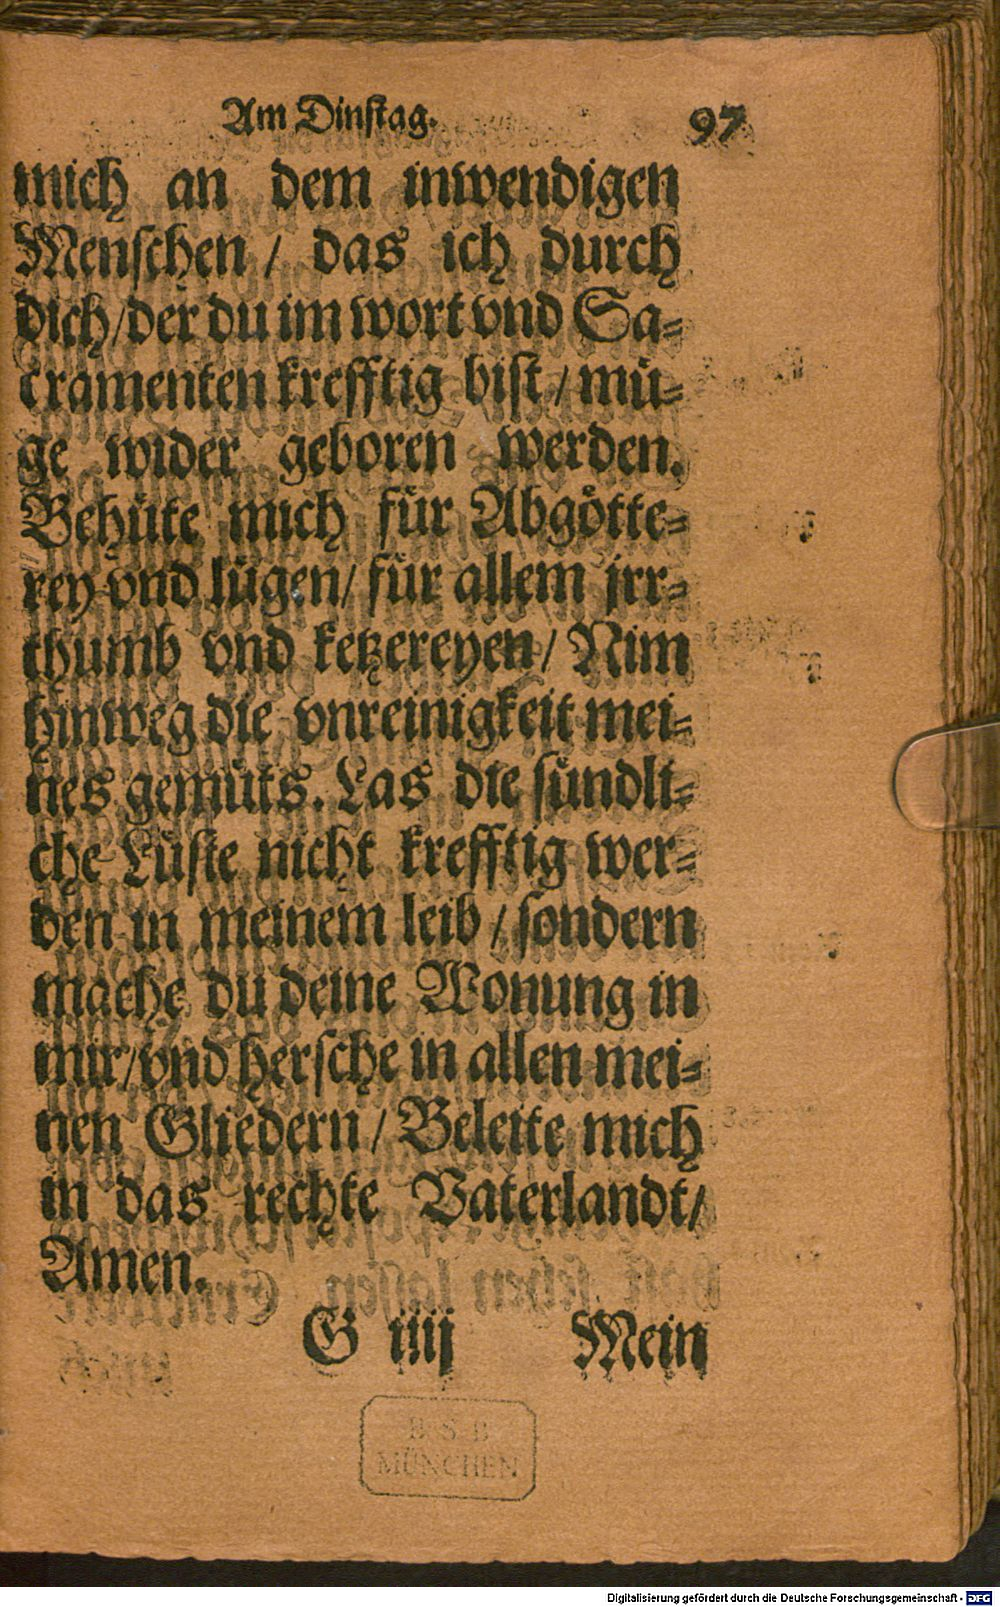 Am Dinstag. 97
mich an dem inwendigen
Menschen / das ich durch
dich / der du im wort vnd Sa⸗
cramenten krefftig bist / mü⸗
ge wider geboren werden.
Behüte mich für Abgötte⸗
rey vnd lügen / für allem jrr⸗
thumb vnd ketzereyen / Nim
hinweg die vnreinigkeit mei⸗
nes gemüts. Las die sündli⸗
che Lüste nicht krefftig wer⸗
den in meinem leib / sondern
mache du deine Wonung in
mir / vnd hersche in allen mei⸗
nen Gliedern / Beleite mich
in das rechte Vaterlandt /
Amen.
G iiij Mein
B S B
MÜNCHEN
Digitalisierung gefördert durch die Deutsche Forschungsgemeinschaft - DFG